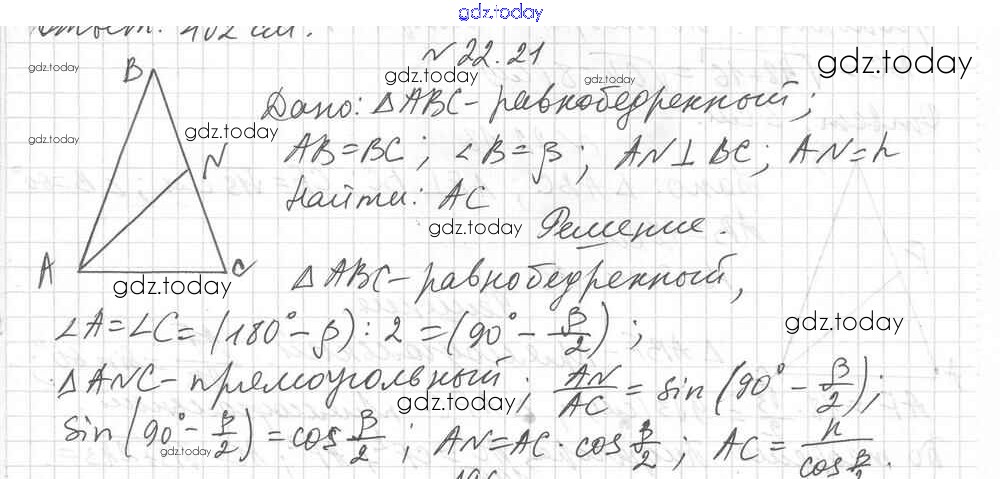 gdz.today
Ответ: 402 см.
№ 22.21
gdz.today
gdz.today
gdz.today
gdz.today
B
Дано: △ABC - равнобедренный;
gdz.today
gdz.today
AB = BC; ∠B = β; AN ⊥ BC; AN = h
N
Найти: AC
gdz.today
Решение.
A
C
gdz.today
△ABC - равнобедренный,
∠A = ∠C = (180° - β) : 2 = (90° - β/2);
gdz.today
△ANC - прямоугольный; AN/AC = sin (90° - β/2);
gdz.today
sin (90° - β/2) = cos β/2; AN = AC · cos β/2; AC = h/cos β/2.
gdz.today